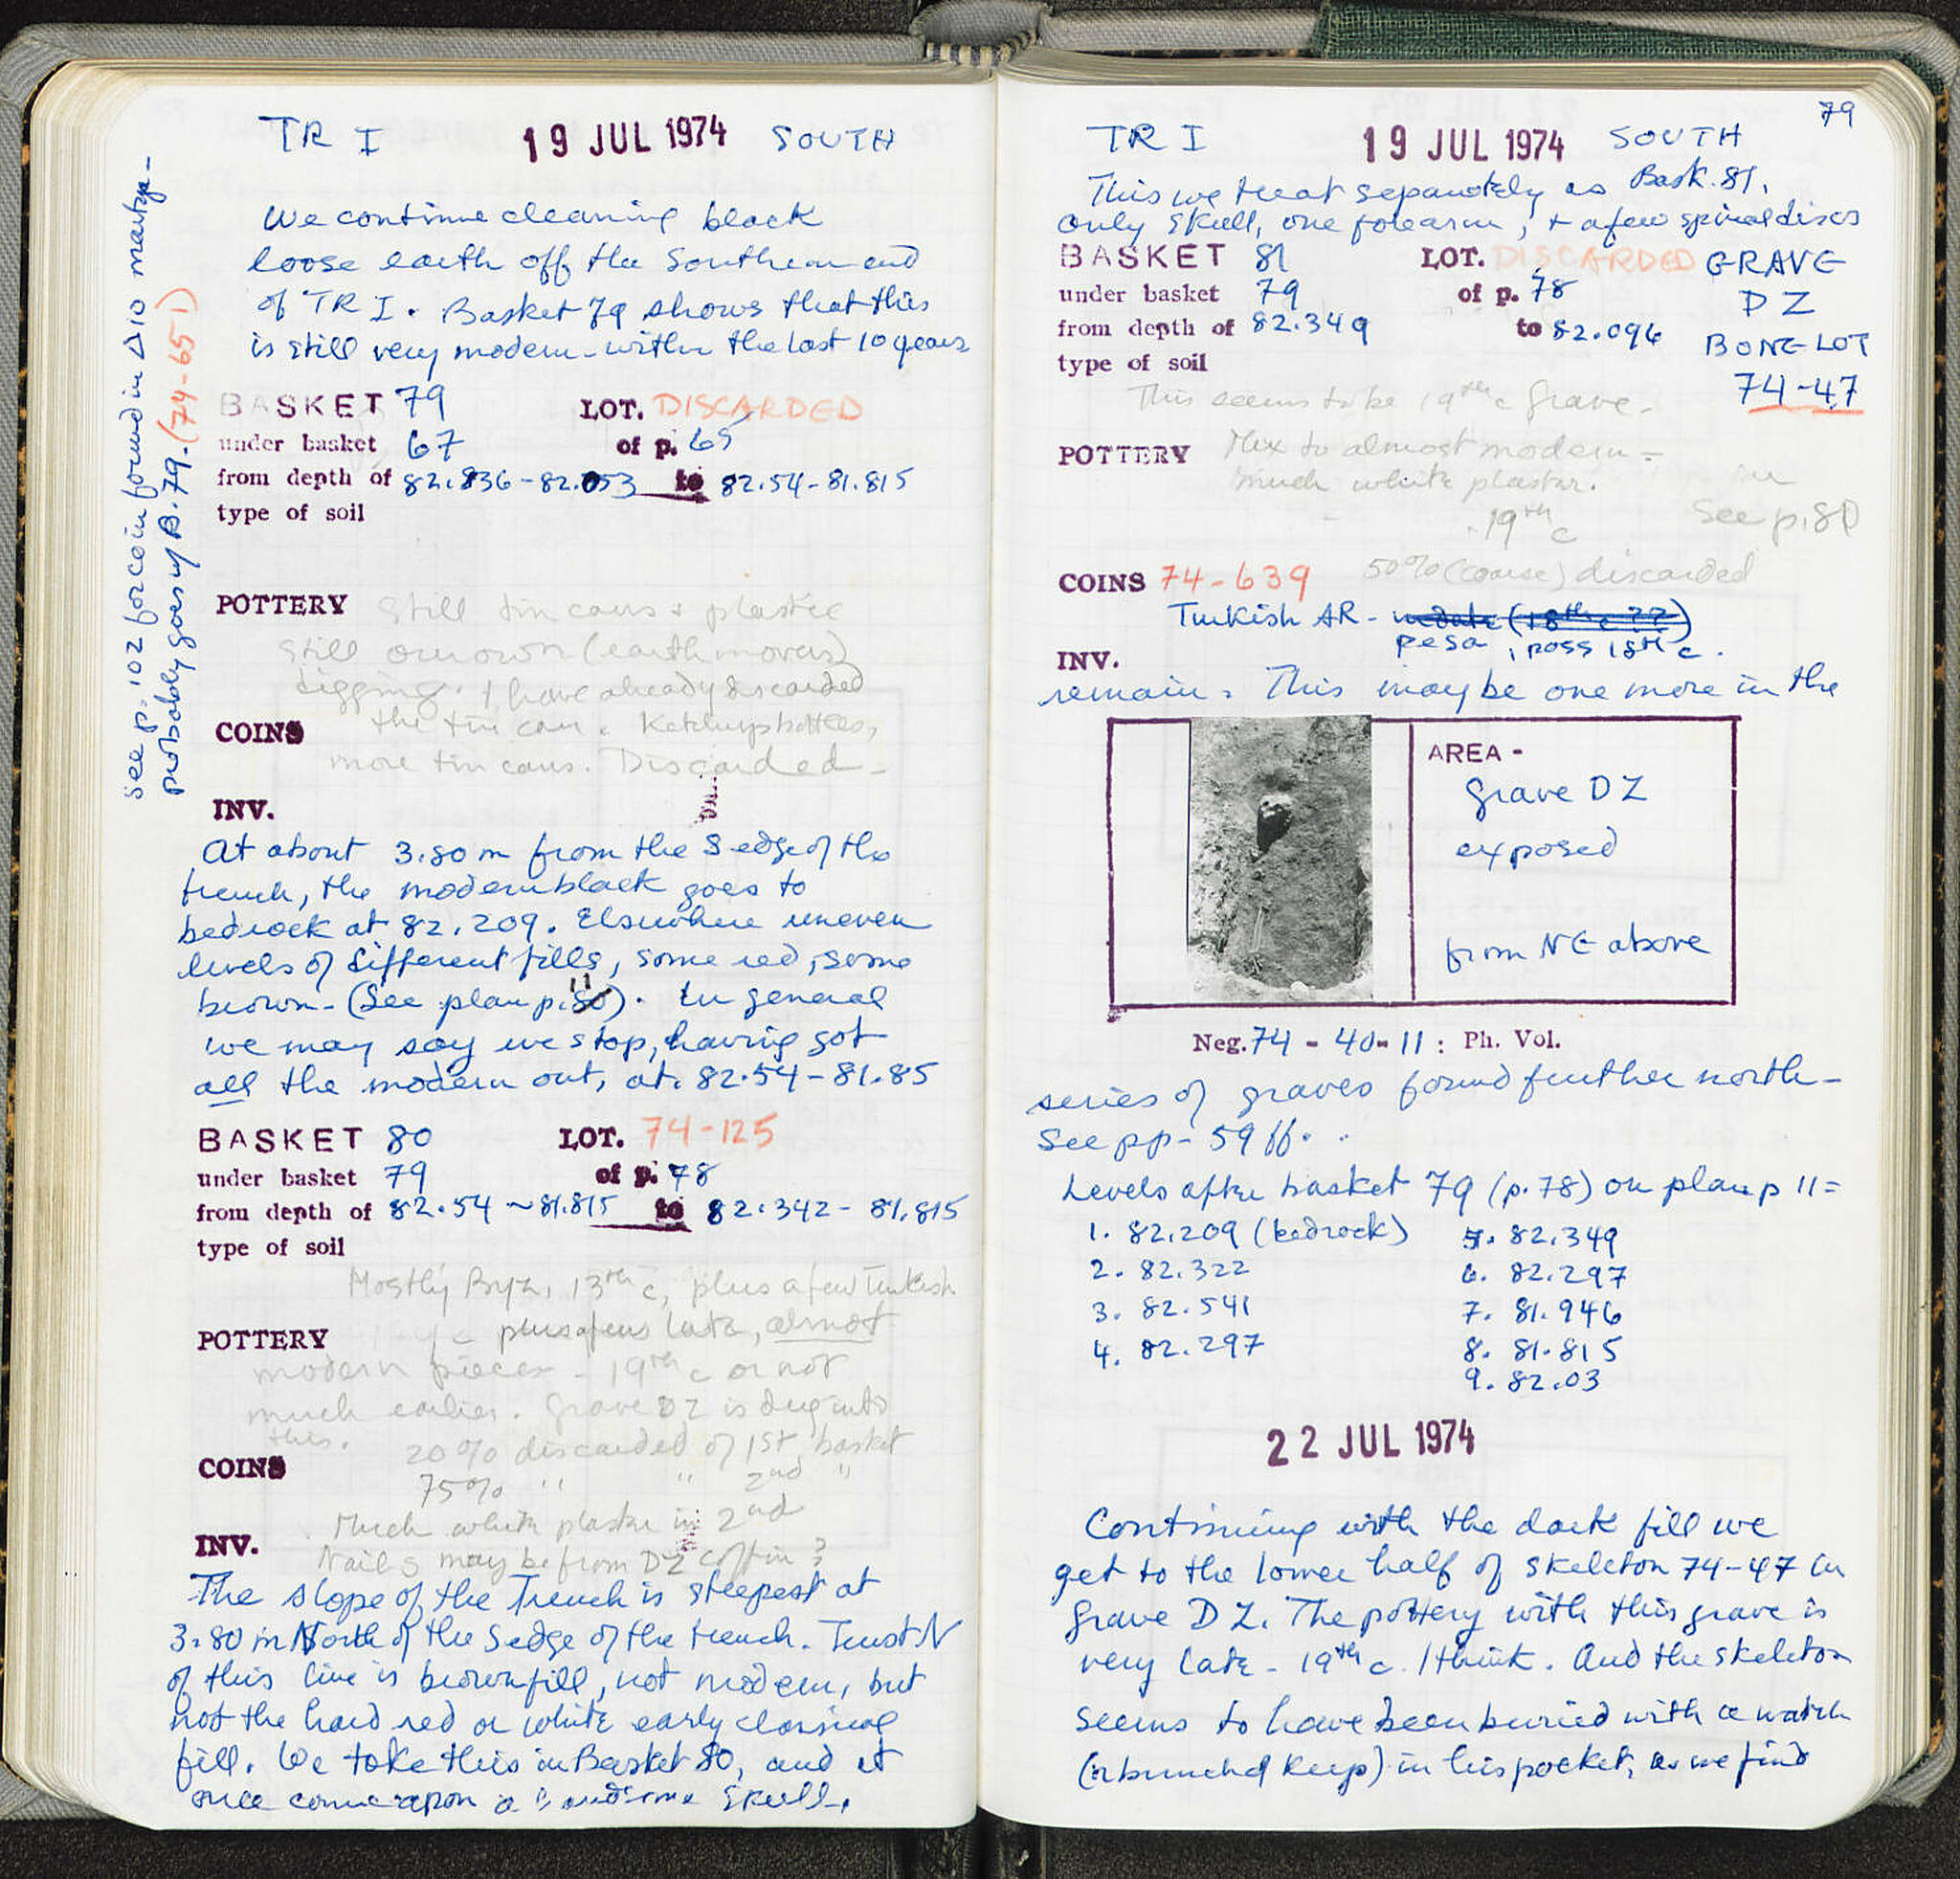 TR I 19 JUL 1974 SOUTH
We continue cleaning black
loose earth off the Southern end
of TR I. Basket 79 shows that this
is still very modern - within the last 10 years
BASKET 79 LOT. DISCARDED
under basket 67 of p. 65
from depth of 82.836 - 82.053 to 82.54 - 81.815
type of soil
POTTERY Still tin cans + plastic
still our own (earth movers)
digging. I have already discarded
COINS the tin cans. Ketchup bottles,
more tin cans. Discarded -
INV.
At about 3.80 m from the S edge of the
trench, the modern black goes to
bedrock at 82.209. Elsewhere uneven
levels of different fills, some red, some
brown - (See plan p. 11). In general
we may say we stop, having got
all the modern out, at 82.54 - 81.85
BASKET 80 LOT. 74-125
under basket 79 of p. 78
from depth of 82.54 ~ 81.815 to 82.342 - 81.815
type of soil
Mostly Byz, 13th c, plus a few Turkish
POTTERY plus a few late, almost
modern pieces - 19th c or not
much earlier. Grave DZ is dug into
this.
COINS 20% discarded of 1st basket
75% " " 2nd "
Much white plaster in 2nd
INV. Nails may be from DZ coffin?
The slope of the trench is steepest at
3.80 m North of the S edge of the trench. Just N
of this line is brown fill, not modern, but
not the hard red or white early classical
fill. We take this in Basket 80, and at
once come upon a handsome skull.
see p. 102 for coin found in Δ10 martyr-
probably goes w/ B. 79. (74-651)
79
TR I 19 JUL 1974 SOUTH
This we treat separately as Bask. 81.
Only skull, one forearm, + a few spinal discs
BASKET 81 LOT. DISCARDED GRAVE
under basket 79 of p. 78 DZ
from depth of 82.349 to 82.096 BONE LOT
type of soil 74-47
This seems to be 19th c grave -
POTTERY Mix to almost modern -
much white plaster.
19th c
See p. 80
50% (coarse) discarded
COINS 74-639
Turkish AR - undate (18th c ??)
pesa, poss 18th c.
INV.
remain. This may be one more in the
AREA -
Grave DZ
exposed
from NE above
Neg. 74 - 40-11 : Ph. Vol.
series of graves found further north -
See pp - 59 ff.
Levels after basket 79 (p. 78) on plan p 11 =
1. 82.209 (bedrock) 5. 82.349
2. 82.322 6. 82.297
3. 82.541 7. 81.946
4. 82.297 8. 81.815
9. 82.03
22 JUL 1974
Continuing with the dark fill we
get to the lower half of skeleton 74-47 in
Grave DZ. The pottery with this grave is
very late - 19th c. I think. And the skeleton
seems to have been buried with a watch
(or bunch of keys) in his pocket, as we find